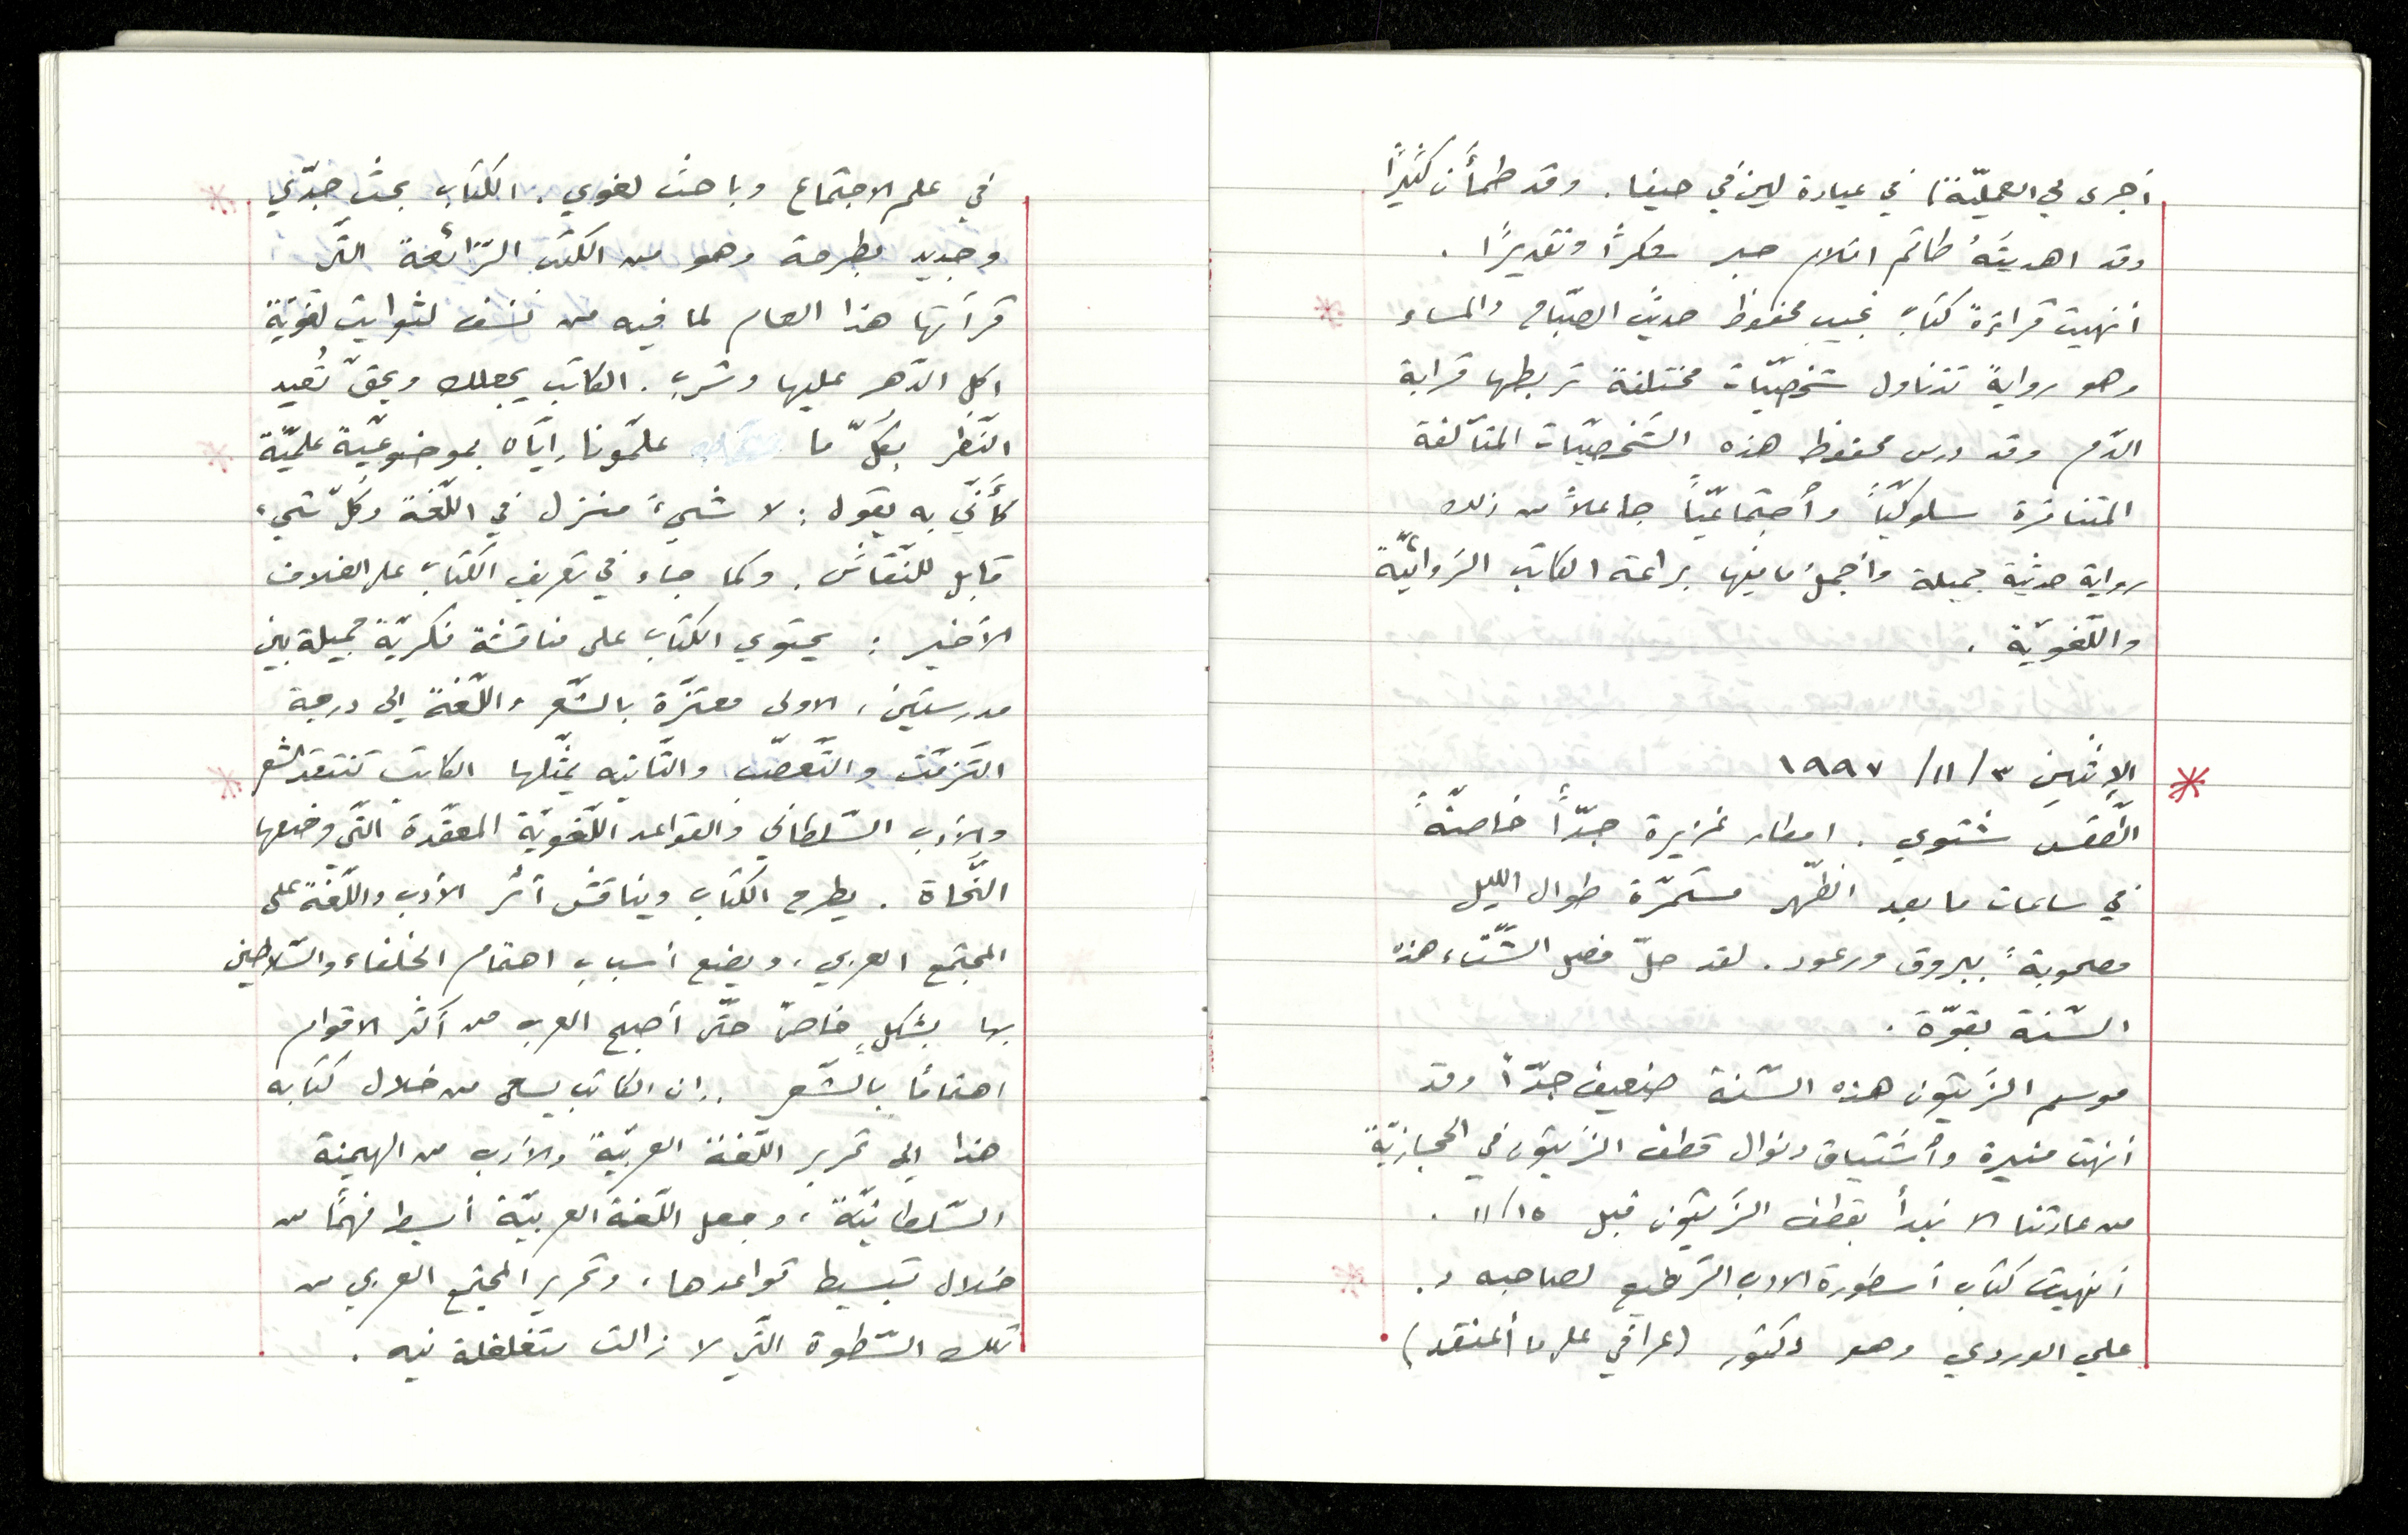 أجرى لي العمليّة) في عيادة لين في حيفا. وقد طمأَن كثيرًا
وقد اهديتَهُ طاقم اقلام حبر شكرًا وتقديرًا.
أنهيت قراءَة كتاب نجيب محفوظ حديث الصّباح والمساء
وهو روايةً تتناول شخصيّات مختلفة تربطها قرابة
الدّم وقد درس محفوظ هذه الشّخصيّات المتآلفة
المتنافرة سلوكيّاً وأجتماعيّاً جاعلاً من ذلك
رواية حديثة جميلة وأجملُ ما فيها براعة الكاتب الرّوائيّة
واللّغويّة.
الإثنين ٣/١١/١٩٩٧
الطّقس شتوي. امطار غزيرة جدّاً خاصّةً
في ساعات ما بعد الظّهر مستمرّة طوال الليل
مصحوبةً ببروق ورعود. لقد حلّ فصل الشّتاء هذه
السّنة بقوّة.
موسم الزّيتون هذه السّنة ضعيف جدّاً وقد
أنهت منيرة وأشتياق ونوال قطف الزّيتون في الحجازيّة
من عادتنا الا نبدأ بقطف الزّيتون قبل ١٥/١١.
أنهيت كتاب أسطورة الادب الرّفيع لصاحبه د.
علي الوردي وهو دكتور (عراقي على ما أعتقد)
في علم الاجتماع وباحث لغوي. الكتاب بحث جدّي
وجديد بطرحه وهو من الكتب الرّائعة التّي
قرأتها هذا العام لما فيه من نسف لثوابت لغويّة
اكل الدّهر عليها وشرب. الكاتب يجعلك وبحقّ تُعيد
النّظر بكلّ ما علّمونا إيّاه بموضوعيّة علميّة
كأَنّي به يقول: لا شيءَ منزل في اللّغة وكلّ شيء
قابل للنّقاش. وكما جاء في تعريف الكتاب على الغلاف
الأخير: يحتوي الكتاب على مناقشة فكريّة جميلة بين
مدرستين، الاولى معتزّة بالشّعر واللّغة إلى درجة
التزمّت والتّعصّب والثّانيه يمثّلها الكاتب تنتقد الشعر
والأدب السّلطاني والقواعد اللّغويّة المعقّدة التّي وضعها
النّحاة. يطرح الكتاب ويناقش أثر الأدب واللّغة على
المجتمع العربي، ويضع أسباب اهتمام الخلفاء والسّلاطين
بها بشكلٍ خاصّ حتّى أصبح العرب من أكثر الاقوام
اهتمامًا بالشّعر. إن الكاتب يسعى من خلال كتابه
هذا إلى تحرير اللّغة العربيّة والأدب من الهيمنة
السّلطانيّة، وجعل اللّغة العربيّة أبسط فهمًا من
خلال تبسيط قواعدها، وتحرير المجتمع العربي من
تلك السّطوة التّي لا زالت متغلغلة فيه.